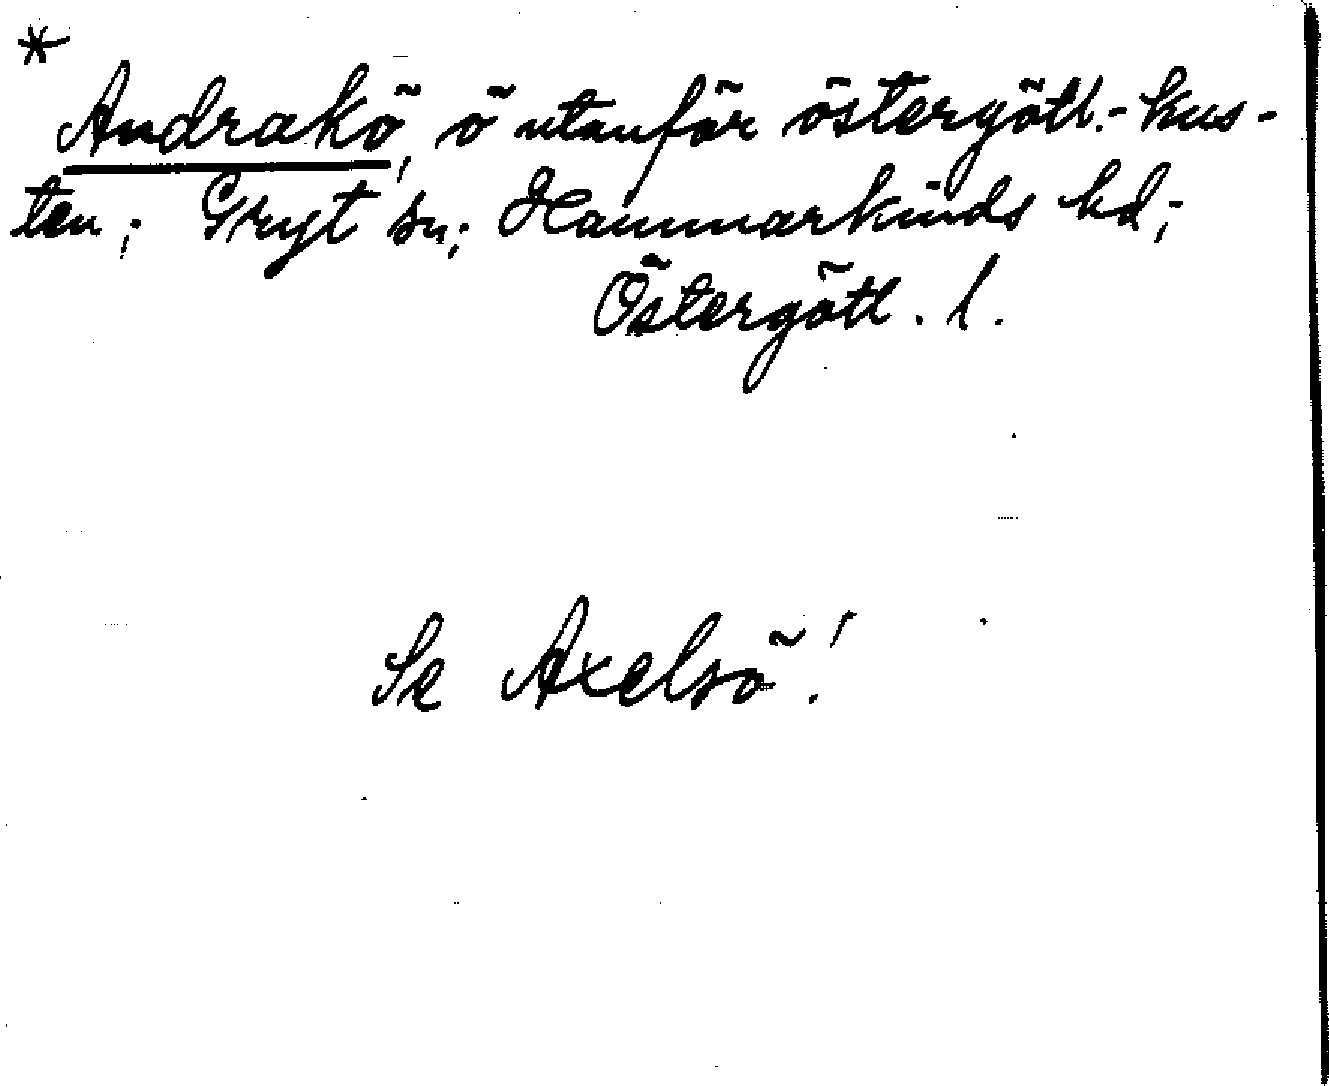 *
Andrakö, ö utanför östergötl.-kus-
ten; Gryt sn; Hammarkinds hd;
Östergötl. l.
Se Axelsö!